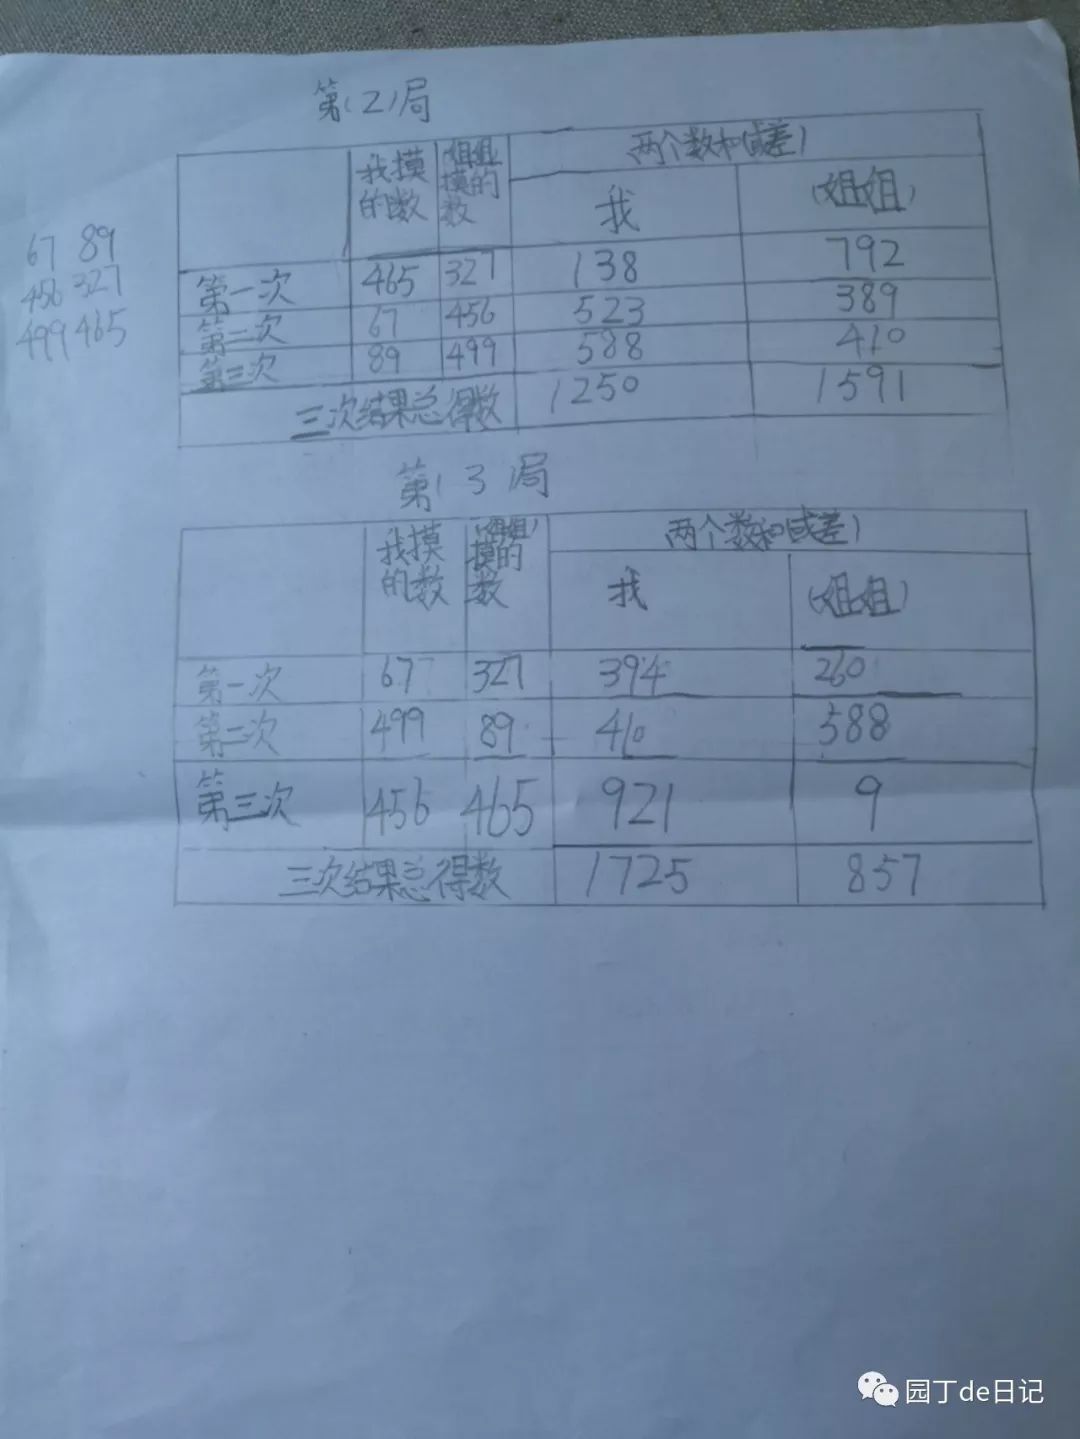 第(2)局
我摸的数 (姐姐)摸的数 两个数和(或差)
我 (姐姐)
67 89
456 327
499 465
第一次 465 327 138 792
第二次 67 456 523 389
第三次 89 499 588 410
三次结果总得数 1250 1591
第(3)局
我摸的数 (姐姐)摸的数 两个数和(或差)
我 (姐姐)
第一次 67 327 394 260
第二次 499 89 410 588
第三次 456 465 921 9
三次结果总得数 1725 857
园丁de日记